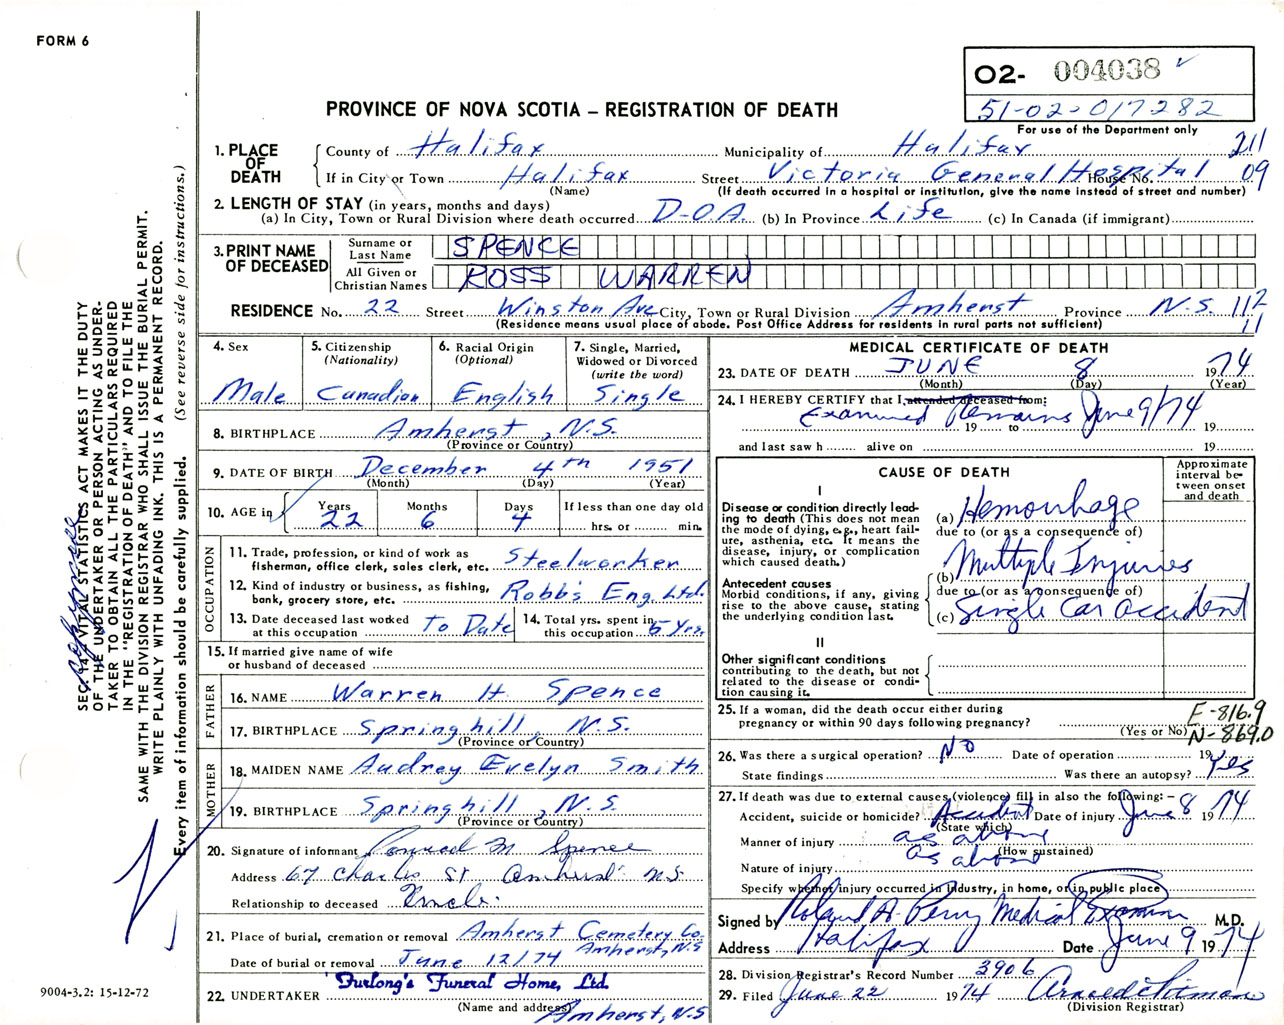 FORM 6
O2- 004038
51-02-017282
For use of the Department only
PROVINCE OF NOVA SCOTIA – REGISTRATION OF DEATH
1. PLACE OF DEATH
County of Halifax Municipality of Halifax 211
If in City or Town Halifax Street Victoria General Hospital House No. 09
(Name) (If death occurred in a hospital or institution, give the name instead of street and number)
2. LENGTH OF STAY (in years, months and days)
(a) In City, Town or Rural Division where death occurred D-O-A. (b) In Province Life (c) In Canada (if immigrant)
3. PRINT NAME OF DECEASED
Surname or Last Name SPENCE
All Given or Christian Names ROSS WARREN
RESIDENCE No. 22 Street Winston Ave City, Town or Rural Division Amherst Province N.S. 112
11
(Residence means usual place of abode. Post Office Address for residents in rural parts not sufficient)
4. Sex
Male
5. Citizenship (Nationality)
Canadian
6. Racial Origin (Optional)
English
7. Single, Married, Widowed or Divorced (write the word)
Single
8. BIRTHPLACE Amherst, N.S.
(Province or Country)
9. DATE OF BIRTH December 4th 1951
(Month) (Day) (Year)
10. AGE in Years 22 Months 6 Days 4 If less than one day old
hrs. or min.
OCCUPATION
11. Trade, profession, or kind of work as fisherman, office clerk, sales clerk, etc. Steelworker
12. Kind of industry or business, as fishing, bank, grocery store, etc. Robb's Eng. Ltd.
13. Date deceased last worked at this occupation To Date
14. Total yrs. spent in this occupation 5 Yrs.
15. If married give name of wife or husband of deceased
FATHER
16. NAME Warren H. Spence
17. BIRTHPLACE Springhill, N.S.
(Province or Country)
MOTHER
18. MAIDEN NAME Audrey Evelyn Smith
19. BIRTHPLACE Springhill, N.S.
(Province or Country)
20. Signature of informant Conrad M Spence
Address 67 Charles St Amherst N.S
Relationship to deceased Uncle.
21. Place of burial, cremation or removal Amherst Cemetery Co.
Amherst, N.S
Date of burial or removal June 12/74
22. UNDERTAKER Furlong's Funeral Home, Ltd.
(Name and address) Amherst, N.S
MEDICAL CERTIFICATE OF DEATH
23. DATE OF DEATH JUNE 8 1974
(Month) (Day) (Year)
24. I HEREBY CERTIFY that I attended deceased from:
Examined Remains June 9/74
19 to 19
and last saw h alive on 19
CAUSE OF DEATH
Approximate interval between onset and death
I
Disease or condition directly leading to death (This does not mean the mode of dying, e.g., heart failure, asthenia, etc. It means the disease, injury, or complication which caused death.)
(a) Hemorrhage
due to (or as a consequence of)
Antecedent causes
Morbid conditions, if any, giving rise to the above cause, stating the underlying condition last.
(b) Multiple Injuries
due to (or as a consequence of)
(c) Single Car accident
II
Other significant conditions
contributing to the death, but not related to the disease or condition causing it.
25. If a woman, did the death occur either during pregnancy or within 90 days following pregnancy? (Yes or No)
E-816.9
N-869.0
26. Was there a surgical operation? No Date of operation 19
State findings Was there an autopsy? Yes
27. If death was due to external causes (violence) fill in also the following: –
Accident, suicide or homicide? Accident Date of injury June 8 1974
(State which)
Manner of injury as above
(How sustained)
Nature of injury as above
Specify whether injury occurred in industry, in home, or in public place
Signed by Roland A. Perry Medical Examiner M.D.
Address Halifax Date June 9 1974
28. Division Registrar's Record Number 3906
29. Filed June 22 1974
(Division Registrar)
SEC. 14 – VITAL STATISTICS ACT MAKES IT THE DUTY
OF THE UNDERTAKER OR PERSON ACTING AS UNDER-
TAKER TO OBTAIN ALL THE PARTICULARS REQUIRED
IN THE "REGISTRATION OF DEATH" AND TO FILE THE
SAME WITH THE DIVISION REGISTRAR WHO SHALL ISSUE THE BURIAL PERMIT.
WRITE PLAINLY WITH UNFADING INK. THIS IS A PERMANENT RECORD.
Every item of information should be carefully supplied. (See reverse side for instructions.)
9004-3.2: 15-12-72